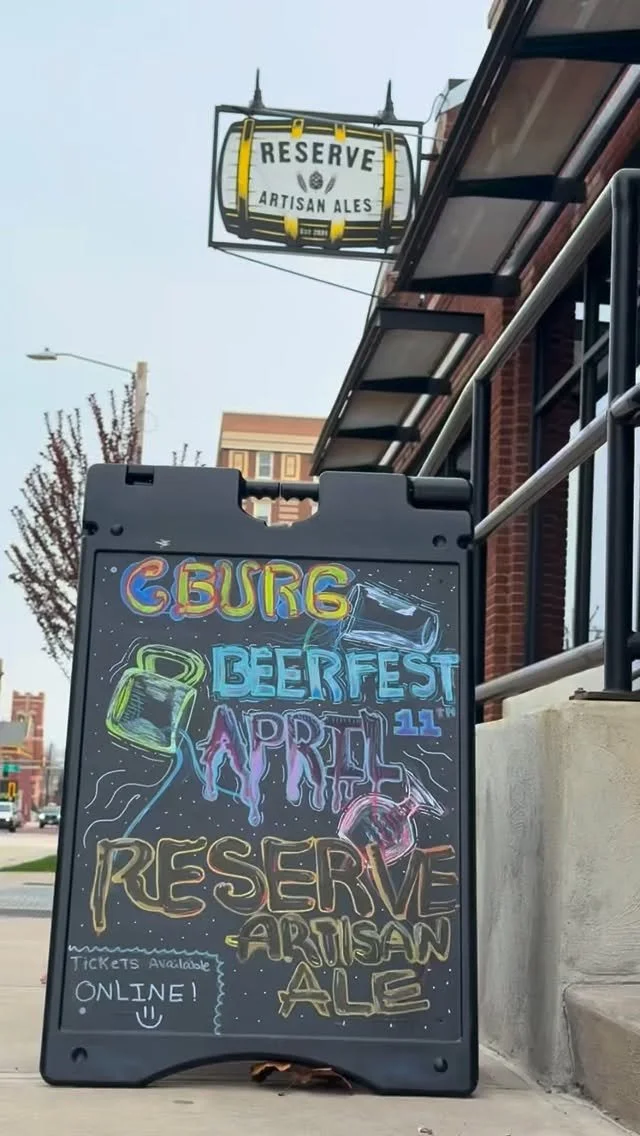 RESERVE
ARTISAN ALES
CBURG
BEERFEST
APRIL 11TH
RESERVE
ARTISAN
ALE
TICKETS Available
ONLINE!